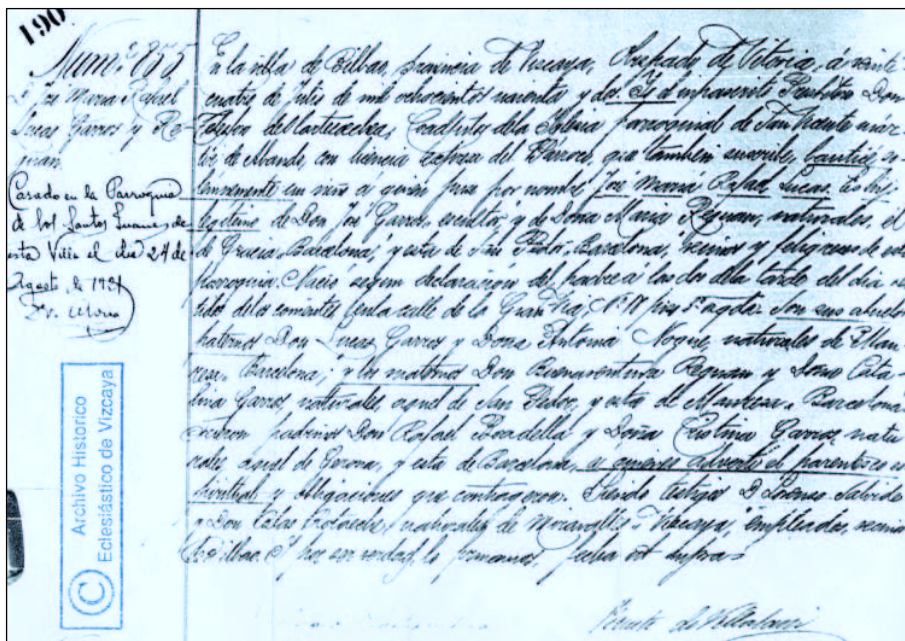 190
Num.º 855
D. José Maria Rafael
Lucas Garros y Re-
guan
Casado en la Parroquia
de los Santos Juanes de
esta Villa el dia 24 de
Agosto de 1931
Archivo Historico
Eclesiástico de Vizcaya
©
En la villa de Bilbao, provincia de Vizcaya, Obispado de Vitoria, á veinte
cuatro de Julio de mil ochocientos noventa y dos. Yo el infrascrito Presbítero Don
Coadjutor de la Iglesia parroquial de San Vicente már-
tir de Abando, con licencia expresa del Párroco, que tambien suscribe, bauticé so-
lemnemente un niño á quien puse por nombre José Maria Rafael Lucas. Es hijo
legítimo de Don José Garros, escultor, y de Doña Maria Reguan, naturales, él
de Gracia, Barcelona, y esta de San Pedor, Barcelona, vecinos y feligreses de esta
parroquia. Nació segun declaración del padre a las dos de la tarde del dia
de los corrientes en la calle de la Gran Via, Nº 18 piso 5º Son sus abuelos
paternos Don Lucas Garros y Doña Antonia Nogue, naturales de Man-
resa, Barcelona; y los maternos Don Buenaventura Reguan y Doña Cata-
lina Garros, naturales, aquel de San Pedor, y esta de Manresa, Barcelona.
Fueron padrinos Don Rafael Boadella y Doña Cristina Garros, natu-
rales, aquel de Gerona, y esta de Barcelona, a quienes advertí el parentesco es-
piritual y obligaciones que contrageron. Siendo testigos D. Lorenzo Salcedo
y Don naturales de Miravalles, Vizcaya, empleados, vecinos
de Bilbao. Y por ser verdad, lo firmamos, fecha ut supra=
Vicente de